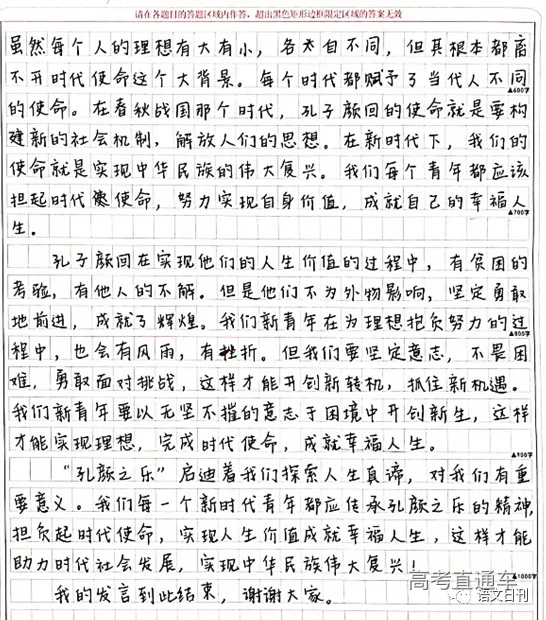 请在各题目的答题区域内作答，超出黑色矩形边框限定区域的答案无效
虽然每个人的理想有大有小，各太自不同，但其根本都离
不开时代使命这个大背景。每个时代都赋予了当代人不同
▲600字
的使命。在春秋战国那个时代，孔子颜回的使命就是要构
建新的社会机制，解放人们的思想。在新时代下，我们的
使命就是实现中华民族的伟大复兴。我们每个青年都应该
担起时代使命，努力实现自身价值，成就自己的幸福人
▲700字
生。
孔子颜回在实现他们的人生价值的过程中，有贫困的
考验，有他人的不解。但是他们不为外物影响，坚定勇敢
地前进，成就了辉煌。我们新青年在为理想抱负努力的过
▲800字
程中，也会有风雨，有挫折。但我们要坚定意志，不畏困
难，勇敢面对挑战，这样才能开创新转机，抓住新机遇。
我们新青年要以无坚不摧的意志于困境中开创新生，这样
才能实现理想，完成时代使命，成就幸福人生。
▲900字
“孔颜之乐”启迪着我们探索人生真谛，对我们有重
要意义。我们每一个新时代青年都应传承孔颜之乐的精神，
担负起时代使命，实现人生价值成就幸福人生，这样才能
助力时代社会发展，实现中华民族伟大复兴！
▲1000字
我的发言到此结束，谢谢大家。
高考直通车
语文日刊